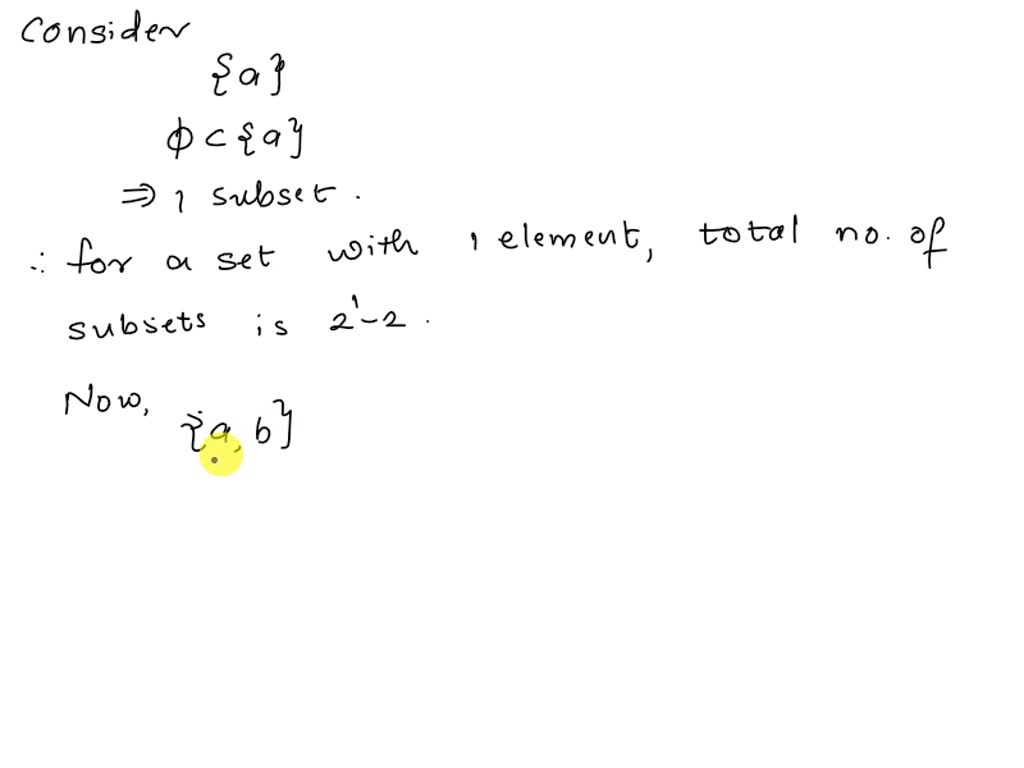 Consider
{a}
ϕ ⊂ {a}
⇒ 1 subset.
∴ for a set with 1 element, total no. of
subsets is 2¹-2.
Now,
{a, b}